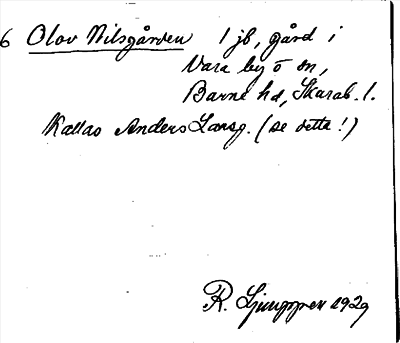 6 Olov Nilsgården 1 jb, gård i
Vara by o sn,
Barne hd, Skarab. l.
Kallas Anders Larsg. (se detta!)
R. Ljunggren 1929